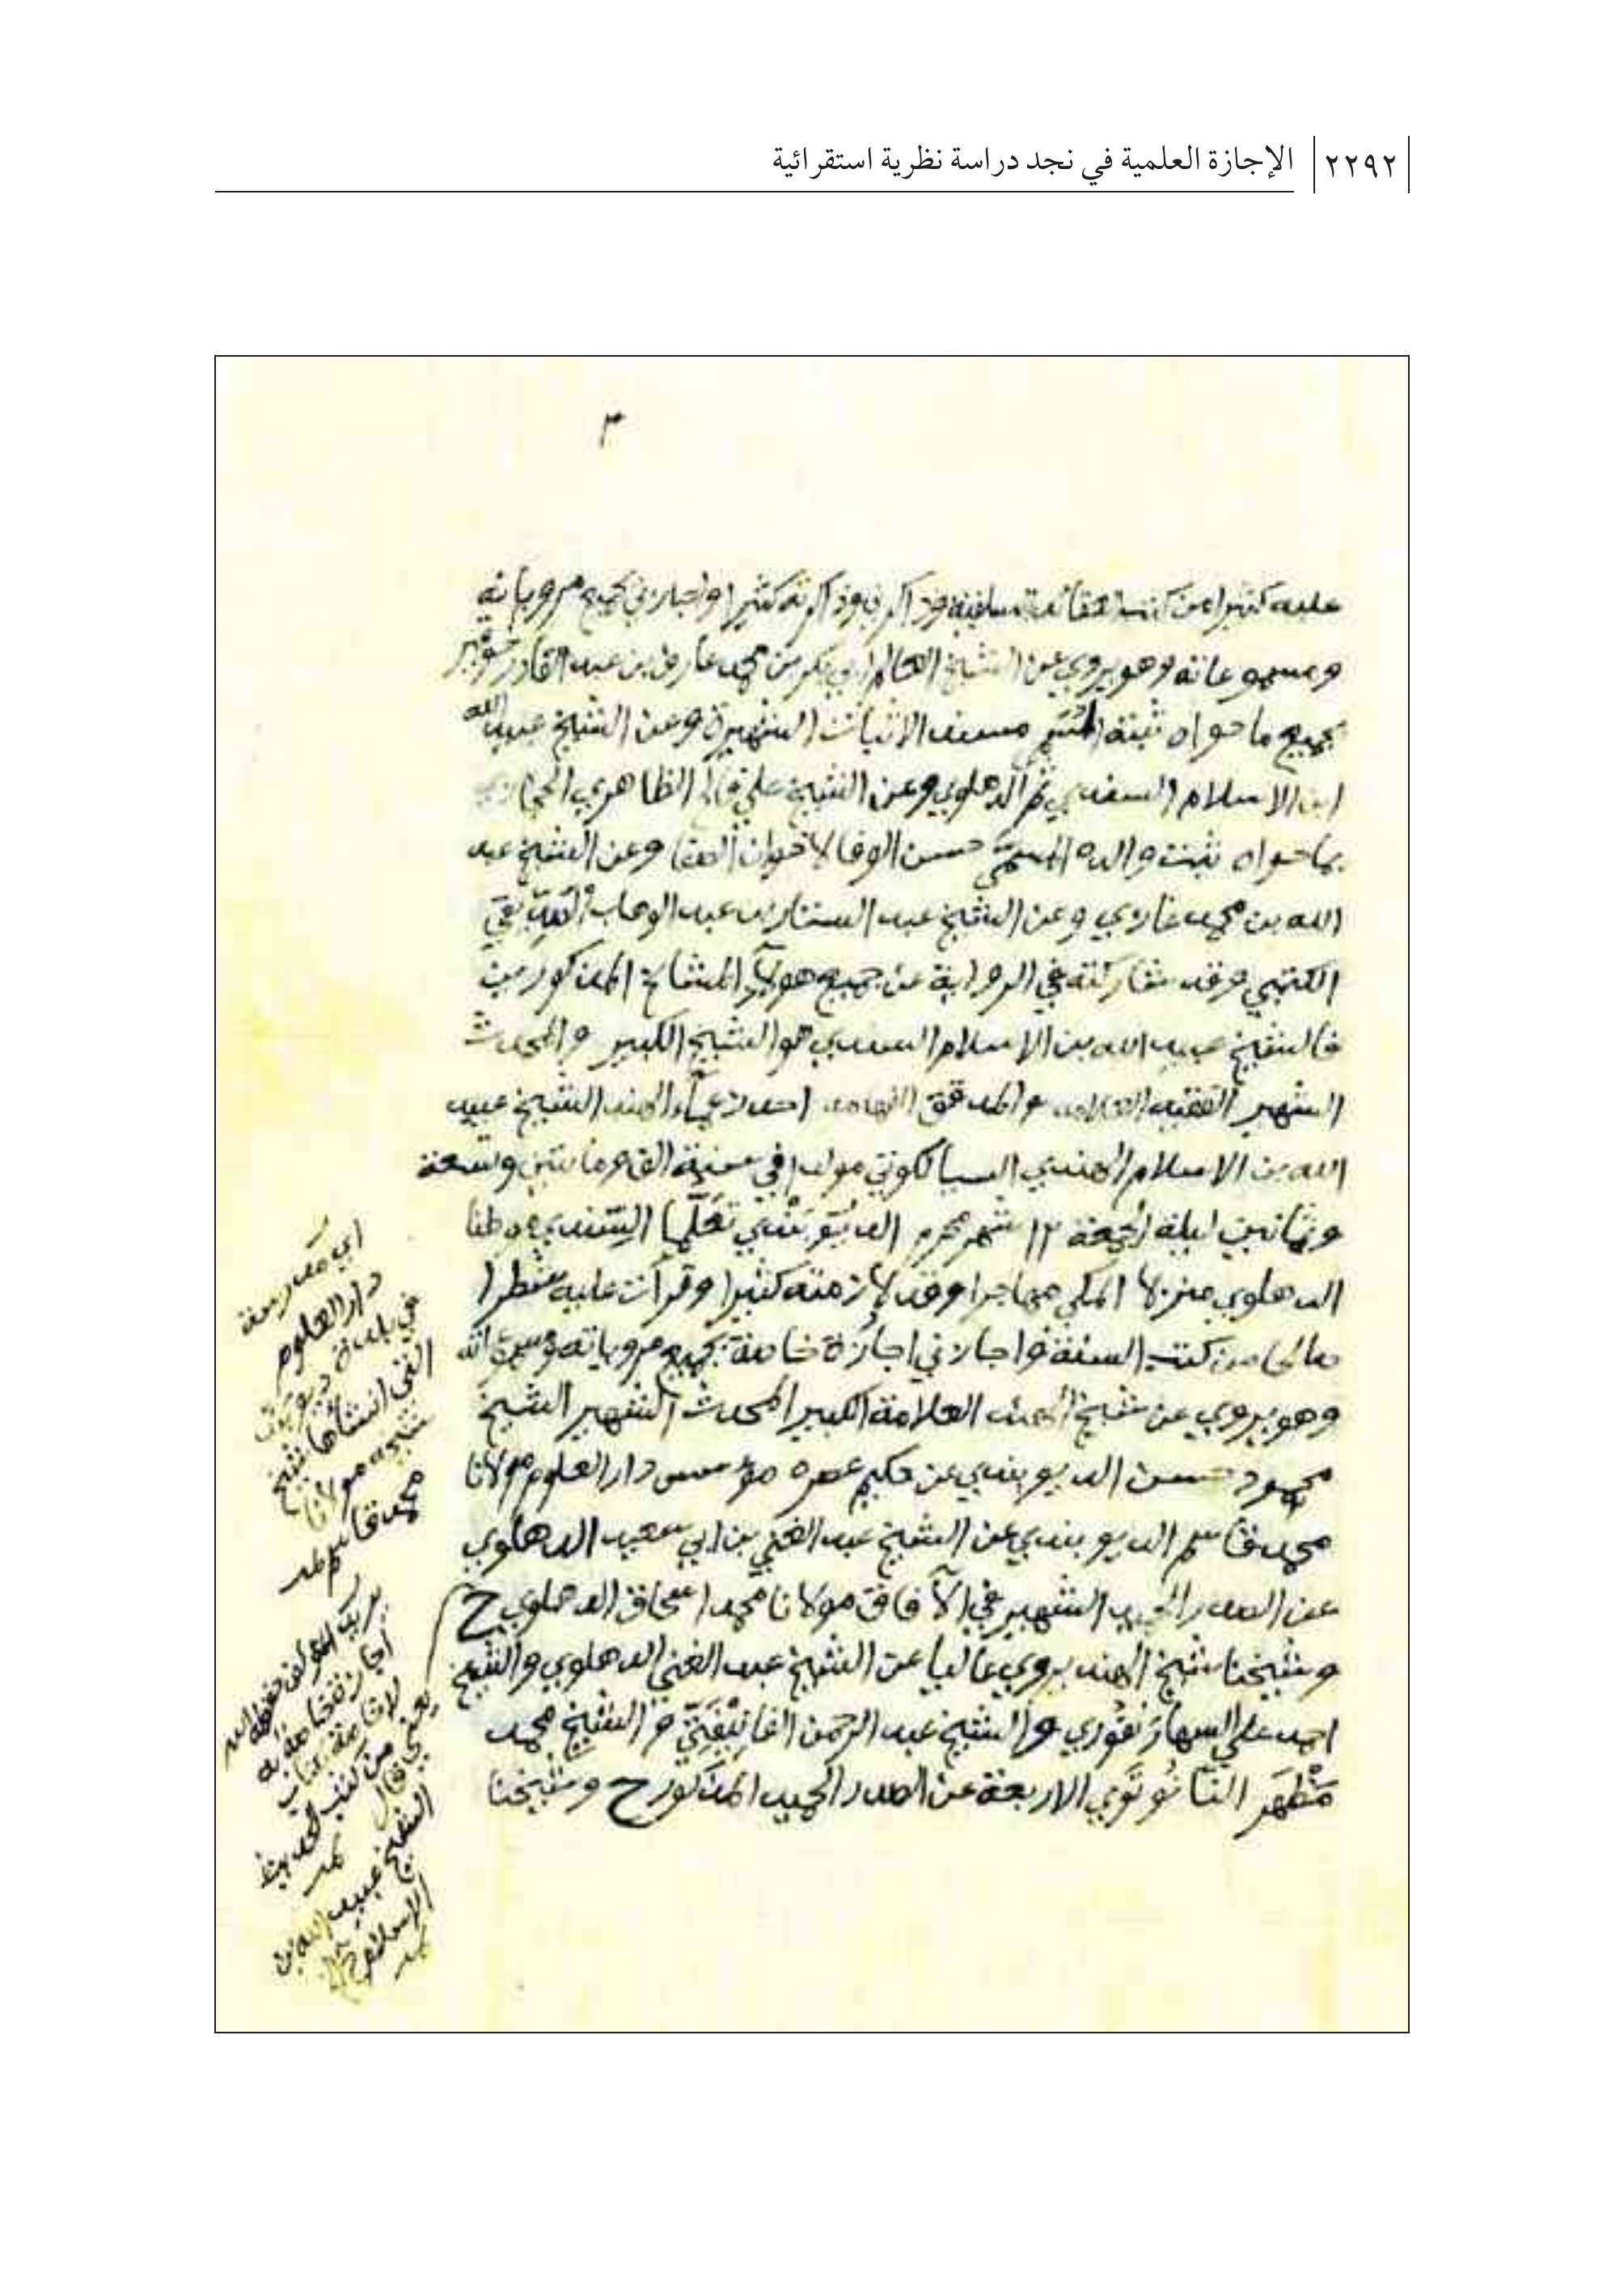 ٢٢٩٢ الإجازة العلمية في نجد دراسة نظرية استقرائية
٣
عليه كثيرا من كتب سلفية وذاكرني وذاكرته كثيرا واجازني بجميع مروياته
ومسموعاته وهو يروي عن الشيخ العالم ابي بكر بن محمد عارف بن عبد القادر خوقير
بجميع ما حواه ثبته مسند الاثبات الشهيرة وعن الشيخ عبيد الله
ابن الاسلام السندي ثم الدهلوي وعن الشيخ علي فالح الظاهري الحجازي
بما حواه ثبت والده المسمى حسن الوفا لاخوان الصفا وعن الشيخ عبد
الله بن محمد غازي وعن الشيخ عبد الستار بن عبد الوهاب الصديقي
الكتبي وقد شاركته في الرواية عن جميع هولاء المشائخ المذكورين
فالشيخ عبيد الله بن الاسلام السندي هو الشيخ الكبير والمحدث
الشهير الفقيه العلامه والمدقق الفهامه احد زعماء الهند الشيخ عبيد
الله بن الاسلام الهندي السيالكوتي مولدا في سنة الف ومائتين وتسعة
وثمانين ليلة الجمعة ١٢ شهر محرم الديوبندي تعلما السندي وطنا
الدهلوي منزلا المكي مهاجرا وقد لازمته كثيرا وقرأت عليه شطرا
صالحا من كتب السنة واجازني اجازة خاصة بجميع مروياته
وهو يروي عن شيخ الهند العلامة الكبير المحدث الشهير الشيخ
محمود حسن الديوبندي عن حكيم عصره مؤسس دار العلوم مولانا
محمد قاسم الديوبندي عن الشيخ عبد الغني بن ابي سعيد الدهلوي
عن الصدر الحميد الشهير في الآفاق مولانا محمد اسحاق الدهلوي ح
وشيخنا شيخ الهند يروي عاليا عن الشيخ عبد الغني الدهلوي والشيخ
احمد علي السهارنفوري والشيخ عبد الرحمن الفانيفتي والشيخ محمد
مظهر النانوتوي الاربعة عن الصدر الحميد المذكور ح وشيخنا
اي مدرسة
دار العلوم
في بلدة ديوبند
التي انشأها شيخ
شيخه مولانا
محمد قاسم
يعني قال
الشيخ عبيد الله بن
الاسلام